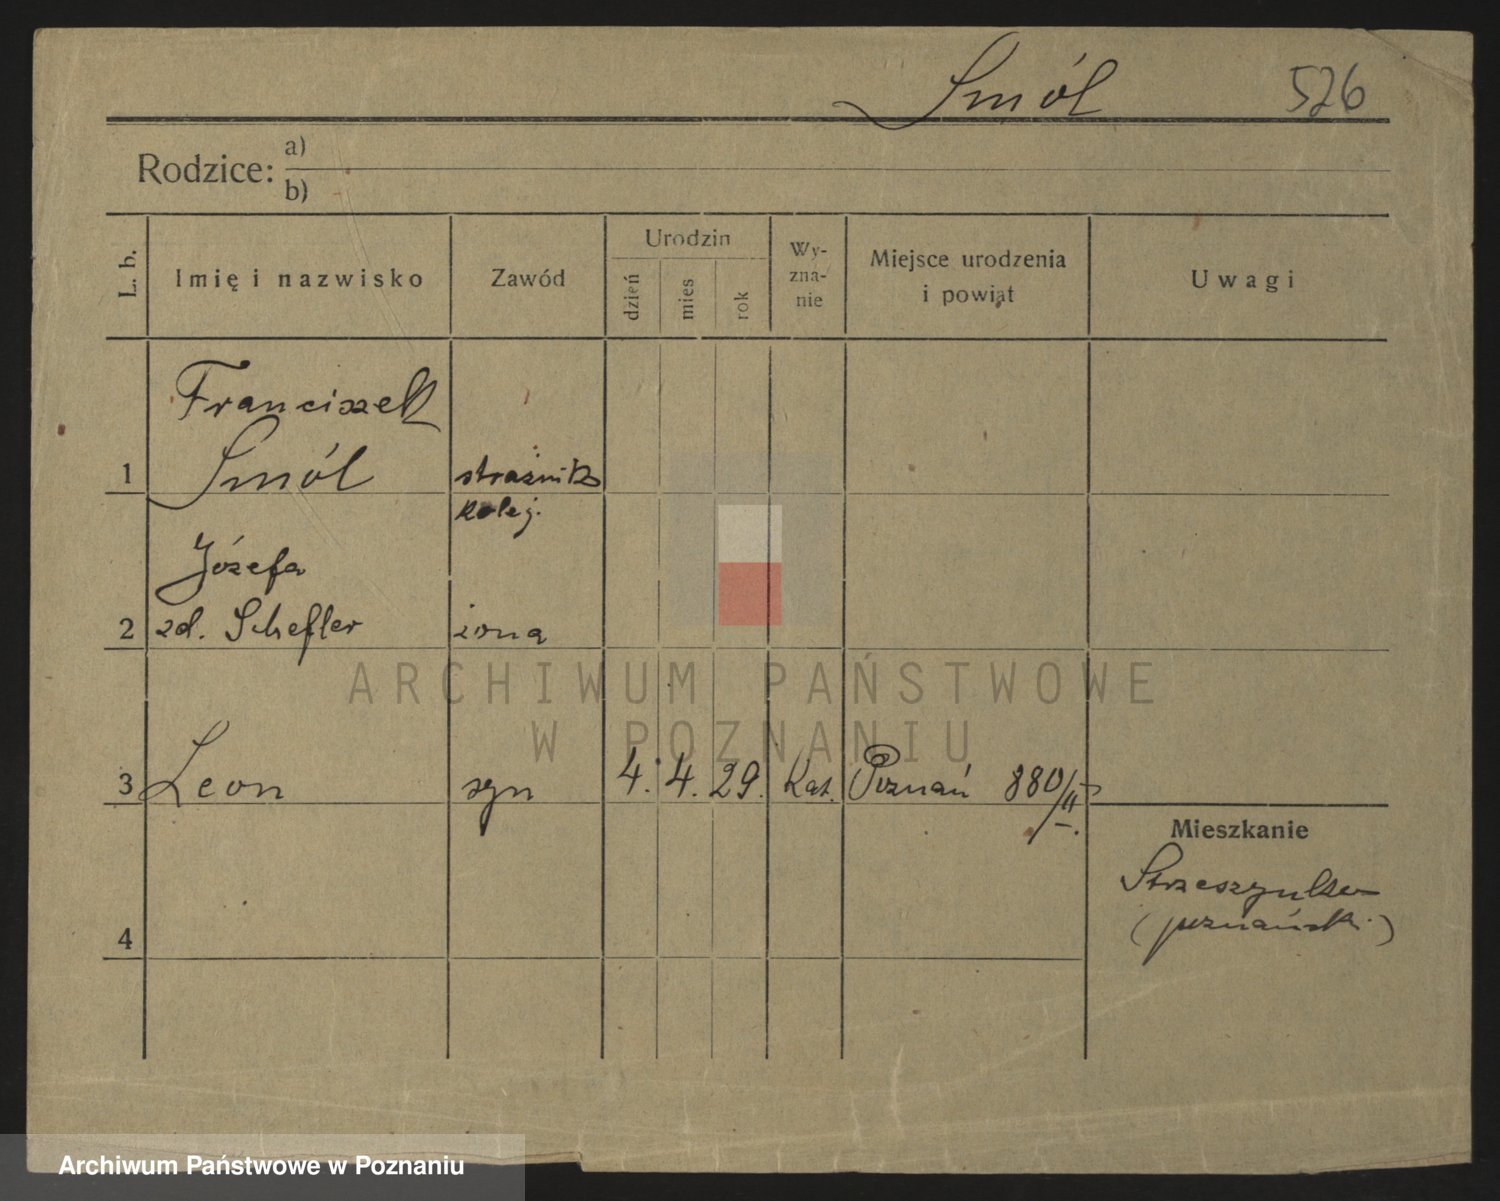 Smól 526
Rodzice: a)
b)
L. b. Imię i nazwisko Zawód Urodzin dzień mies rok Wy-zna-nie Miejsce urodzenia i powiat Uwagi
Franciszek
1 Smól strażnik
kolej.
Józefa
2 zd. Schefler żona
3 Leon syn 4. 4. 29. kat. Poznań 880/II.
Mieszkanie
Strzeszynko
(poznański)
4
ARCHIWUM PAŃSTWOWE
W POZNANIU
Archiwum Państwowe w Poznaniu